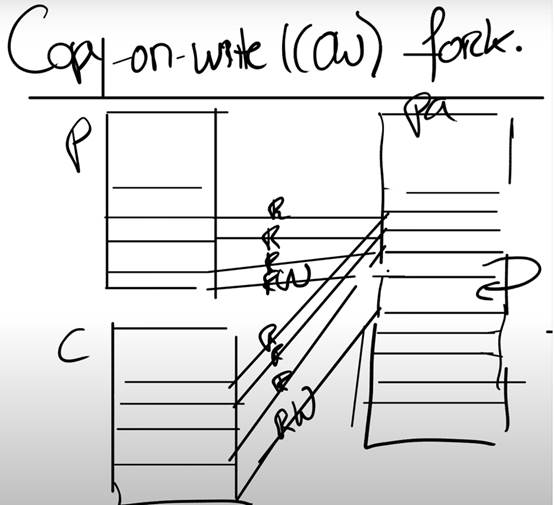 Copy-on-write (COW) fork.
P
pa
R
R
R
RW
C
R
R
R
RW